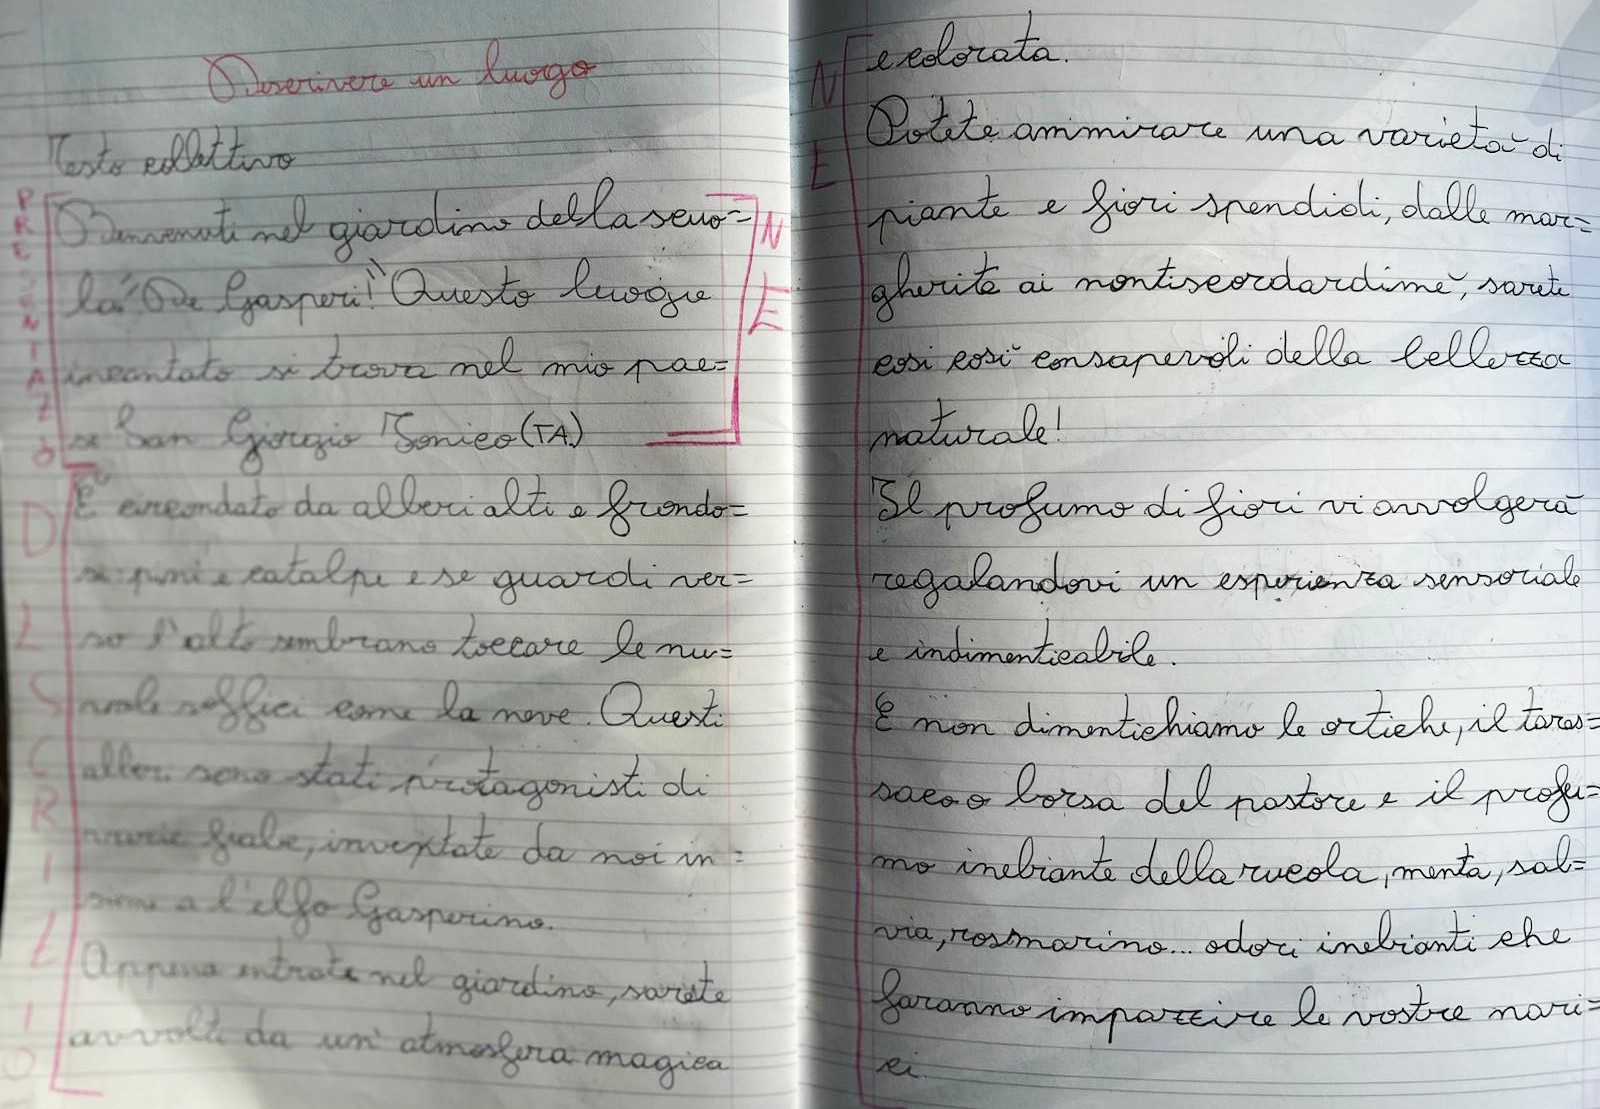 Descrivere un luogo
Testo collettivo
PRESENTAZIO
NE
Benvenuti nel giardino della scuo=
la "De Gasperi!" Questo luogo
incantato si trova nel mio pae=
se San Giorgio Ionico (TA)
DESCRIZIO
È circondato da alberi alti e frondo=
si: pini e catalpe e se guardi ver=
so l'alto sembrano toccare le nu=
vole soffici come la neve. Questi
alberi sono stati protagonisti di
varie fiabe, inventate da noi in=
sieme a l'elfo Gasperino.
Appena entrate nel giardino, sarete
avvolti da un'atmosfera magica
NE
e colorata.
Potete ammirare una varietà di
piante e fiori spendidi, dalle mar=
gherite ai nontiscordardimè, sarete
così così consapevoli della bellezza
naturale!
Il profumo di fiori vi avvolgerà
regalandovi un esperienza sensoriale
e indimenticabile.
E non dimentichiamo le ortiche, il taras=
saco o borsa del pastore e il profu=
mo inebriante della rucola, menta, sal=
via, rosmarino... odori inebrianti che
faranno impazzire le vostre nari=
ci